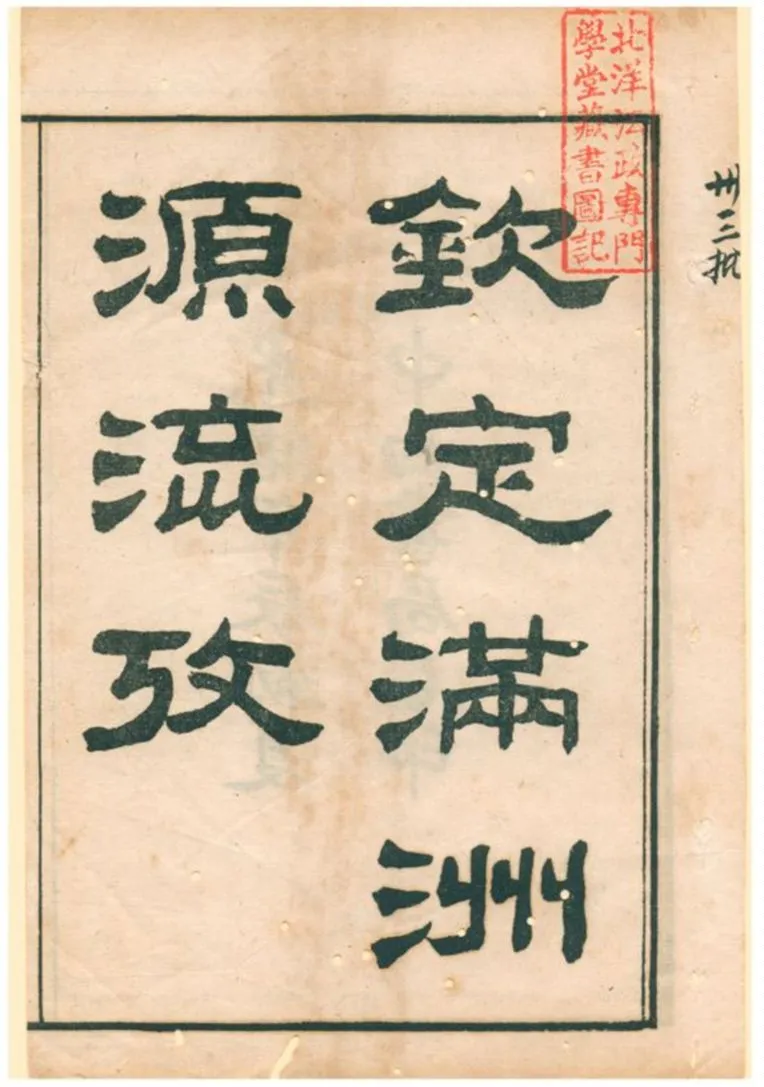 欽定滿洲
源流攷
北洋法政專門
學堂藏書圖記
卅三批